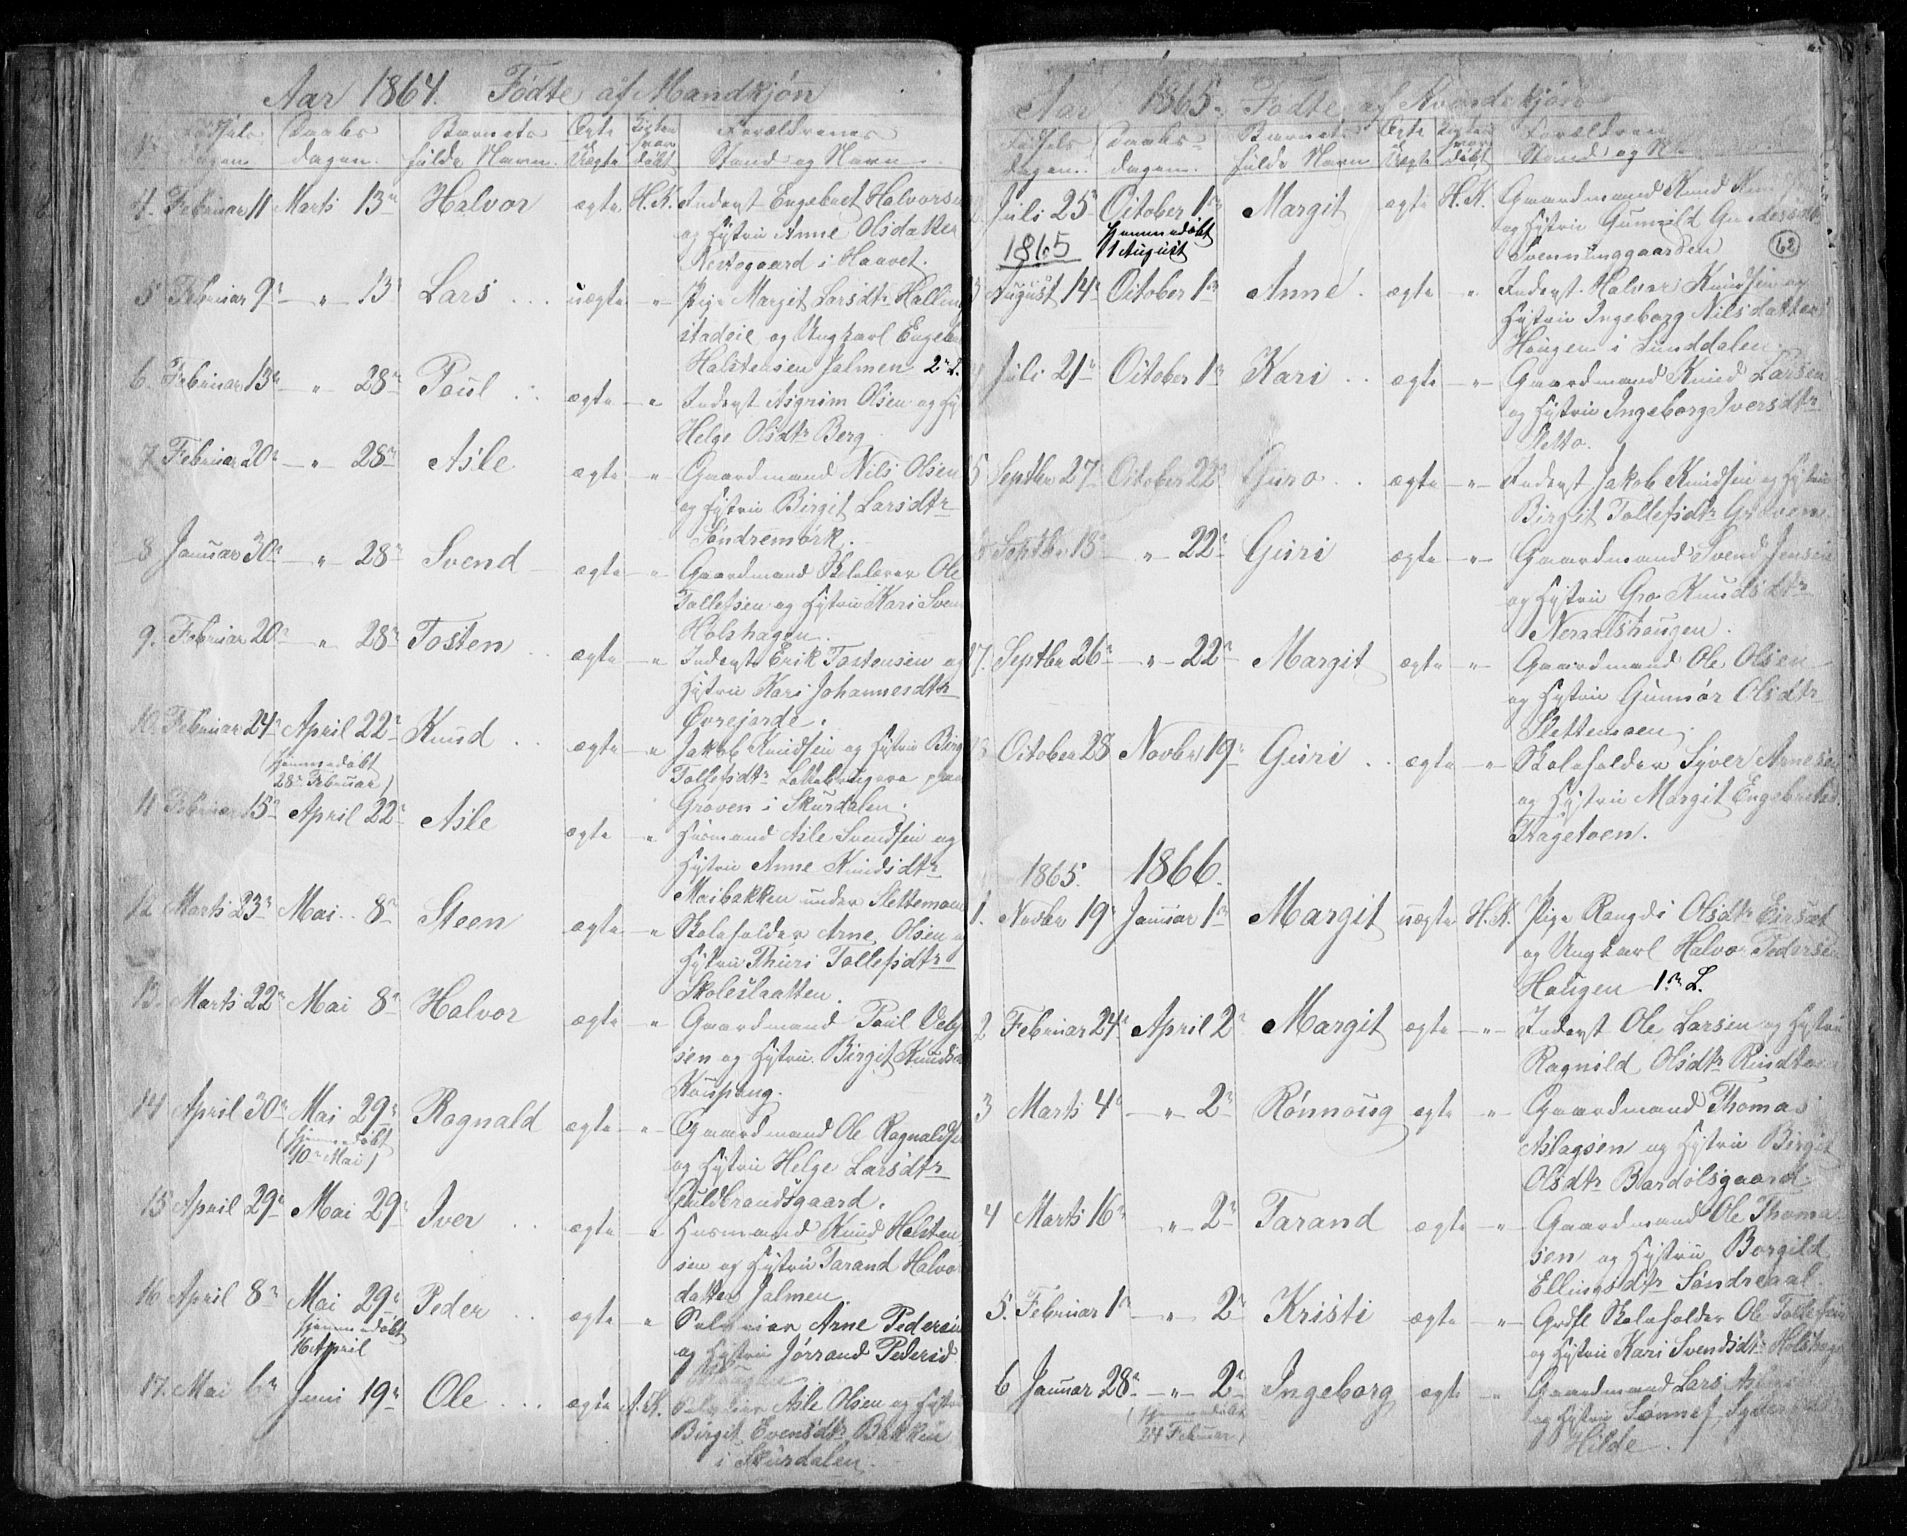 Aar 1864. Fødte af Mandkjøn
Fødsels Daabs Barnets Ægte Kirken Forældrenes
dagen. dagen. fulde Navn. Uægte hvor døbt Stand og Navn
4. Februar 11 Marts 13de Halvor ægte H.K. Inderst Engebret Halvorsen
og Hustru Anne Olsdatter
i Haavet.
5 Februar 9de — " — 13 Lars ... uægte — " Pige Margit Larsdtr Halling
stadeie og Ungkarl Engebr
Halstensen Jalmen 2det L.
6. Februar 13de " 28de Paul .. ægte — " Inderst Asgrim Olsen og Hst
Helge Olsdtr Berg
7. Februar 20de — " 28de Asle ægte — " Gaardmand Nils Olsen
og Hustru Birgit Larsdtr
Søndremørk.
8 Januar 30de — " 28de Svend — ægte — " Gaardmand Skolelærer Ole
Tollefsen og Hustru Kari Sven
Holshagen.
9. Februar 20de — " 28de Tosten .. ægte — " Inderst Erik Tostensen og
Hustru Kari Johannesdtr
Øvrejorde.
10. Februar 24de April 22de Knud .. ægte — " Jakob Knudsen og Hustru Birg
(hjemmedøbt
28de Februar) Tollefsdtr Leilebrugere paa
Groven i Skurdalen.
11 Februar 15de April 22de Asle ægte — " Husmand Asle Svendsen og
Hustru Anne Knudsdtr
Moibakken under Slettemoen
12 Marts 23de Mai .. 8de Steen ægte — " Skoleholder Arne Olsen og
Hustru Thuri Tollefsdtr
Skoleslaatten.
13. Marts 22de Mai 8de Halvor ægte — " Gaardmand Paul Veb
sen og Hustru Birgit Knudsd
Kaupang.
14 April 30de Mai 29de Ragnald ægte — " Gaardmand Ole Ragnaldsen
(hjemmedøbt
10de Mai) og Hustru Helge Larsdtr
Guldbrandsgaard.
15 April 29de Mai 29de Iver .. ægte — " Husmand Knud Halsten
sen og Hustru Tarand Halvo
datter Jalmen
16 April 8de Mai 29de Peder .. ægte — " Selveier Arne Pedersen
hjemmedøbt
16 April og Hustru Jørrand Pedersd
Haugen
17. Mai 6te Juni 19de Ole ... ægte H.K. Selveier Asle Olsen og Hustru
Birgit Evensdtr Bakken
i Skurdalen.
Aar 1865. Fødte af Kvindekjøn
Fødsels Daabs Barnets Ægte Kirken Forældren
dagen. dagen. fulde Navn Uægte hvor døbt Stand og N
Juli 25 October 1ste Margit ægte H.K. Gaardmand Knud Knu
1865 hjemmedøbt
1 August og Hustru Gunild
Svenninggaarden
62
August 14de October 1ste Anne . ægte " Inderst Halvor Knudsen og
Hustru Ingeborg Nilsdatter
Haugen i Sunddalen.
Juli 21de October 1ste Kari .. ægte — " Gaardmand Knud Larsen
og Hustru Ingeborg Iversdtr
Sletto.
5 Septbr 27 October 22de Guro .. ægte — " Inderst Jakob Knudsen og Hustru
Birgit Tollefsdtr Groven
6 Septbr 18de " 22de Guri ægte — " Gaardmand Svend Jensen
og Hustru Gro Knudsdtr
Nerralshaugen.
17. Septbr 26de — " — 22de Margit ægte " Gaardmand Ole Olsen
og Hustru Gunnør Olsdtr
Slettemoen.
18 October 28 Novbr 19de Guri .. ægte — " Skoleholder Syver Arnesen
og Hustru Margit Engebretsd.
Trageteen.
1865. 1866.
1. Novbr 19de Januar 1ste Margit uægte H.K. Pige Rangdi Olsdtr Eirsæt
og Ungkarl Halvo Pedersen
Haugen 1ste L.
2. Februar 24de April 2de Margit ægte — " Inderst Ole Larsen og Hustru
Ragnild Olsdtr Rindto
3 Marts 4de — " — 2de Rønnoug ægte — " Gaardmand Thomas
Aslagsen og Hustru Birgit
Olsdtr Bardolsgaard
4 Marts 16de " 2de Tarand ægte — " Gaardmand Ole Thoma
sen og Hustru Borgild
Ellingsdtr Søndreaal
5. Februar 1ste — " — 2de Kristi ægte — " Grdbr Skoleholder Ole Tollefsen
og Hustru Kari Svendsdtr Holshage
6 Januar 28de — " — 2de Ingeborg ægte " Gaardmand Lars
(hjemmedøbt
24 Februar) og Hustru Sønnef
Hilde.